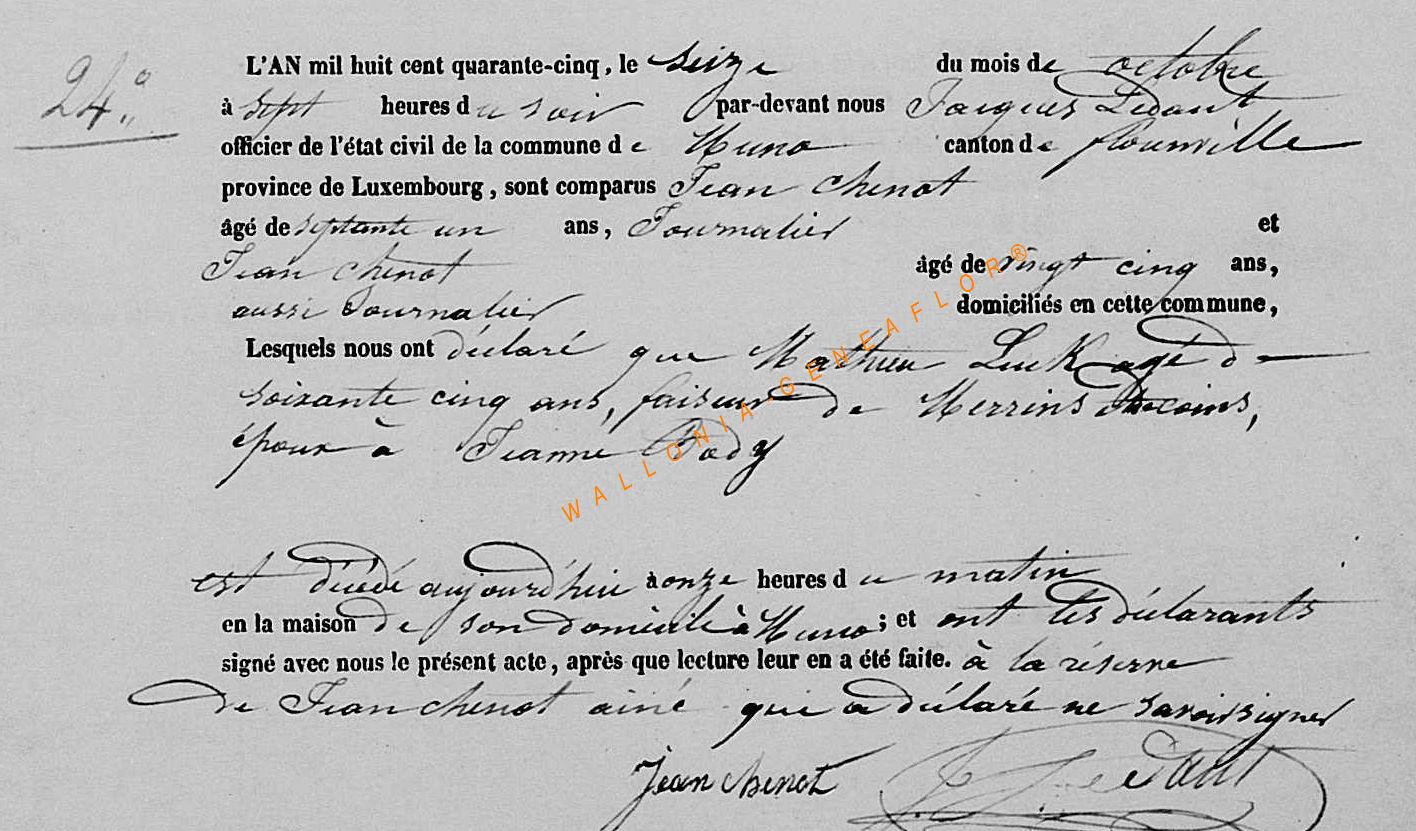 24°
L'AN mil huit cent quarante-cinq, le seize du mois de octobre
à sept heures du soir par-devant nous Jacques Ledant
officier de l'état civil de la commune de Muno canton de flourville
province de Luxembourg, sont comparus Jean Chenot
âgé de septante un ans, Journalier et
Jean Chenot âgé de vingt cinq ans,
aussi Journalier domiciliés en cette commune,
Lesquels nous ont déclaré que Mathieu Luck agé de
soixante cinq ans, faiseur de Merrins
époux à Jeanne Body
est décédé aujourd'hui à onze heures du matin
en la maison de son domicile à Muno; et ont les déclarants
signé avec nous le présent acte, après que lecture leur en a été faite. à la réserve
de Jean chenot ainé qui a déclaré ne savoir signer
Jean chenot J. Ledant
WALLONIA-GENEAFLOR®